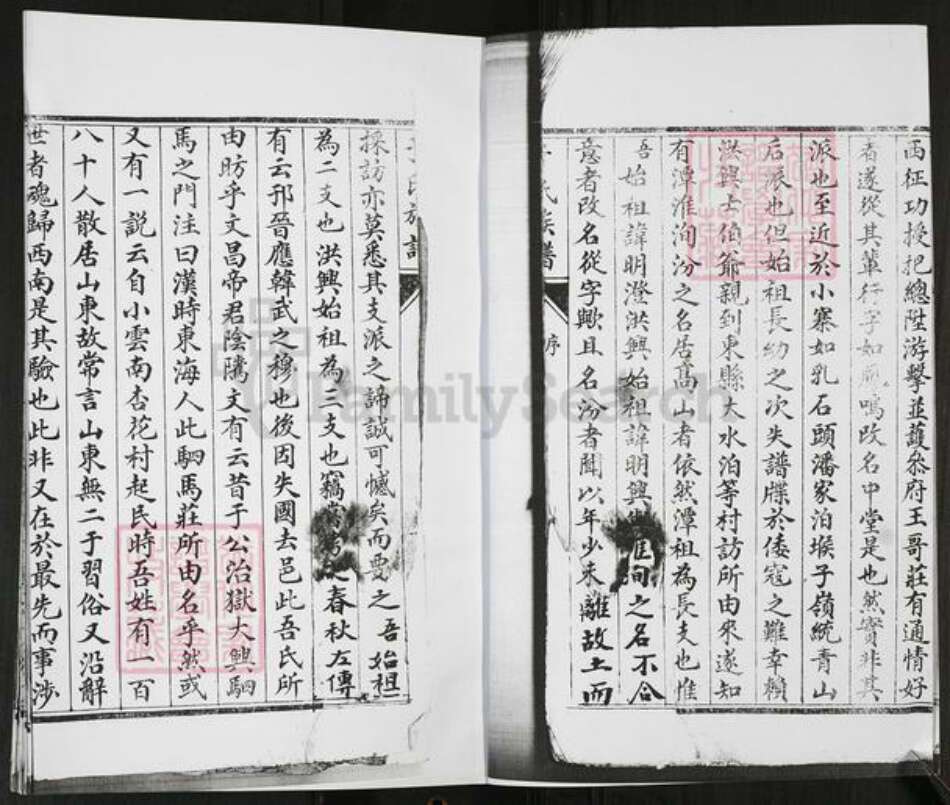 西征功授把總陞游擊並護叅府王哥莊有通情好
者遂從其輩行字如鳳鳴改名中堂是也然實非其
派也至近於小寨如乳石頭潘家泊堠子嶺統青山
后派也但始祖長幼之次失譜牒於倭寇之難幸賴
洪興士伯爺親到東縣大水泊等村訪所由來遂知
有潭淮洵汾之名居高山者依然潭祖為長支也惟
吾始祖諱明澄洪興始祖諱明興與淮洵之名不合
意者改名從字歟且名汾者聞以年少未離故土而
于氏族譜 序
于氏族譜
採訪亦莫悉其支派之諦誠可憾矣而要之吾始祖
為二支也洪興始祖為三支也竊嘗考之春秋左傳
有云邘晉應韓武之穆也後因失國去邑此吾氏所
由昉乎文昌帝君陰騭文有云昔于公治獄大興駟
馬之門注曰漢時東海人此駟馬莊所由名乎然或
又有一說云自小雲南杏花村起民時吾姓有一百
八十人散居山東故常言山東無二于習俗又沿辭
世者魂歸西南是其驗也此非又在於最先而事涉
FamilySearch